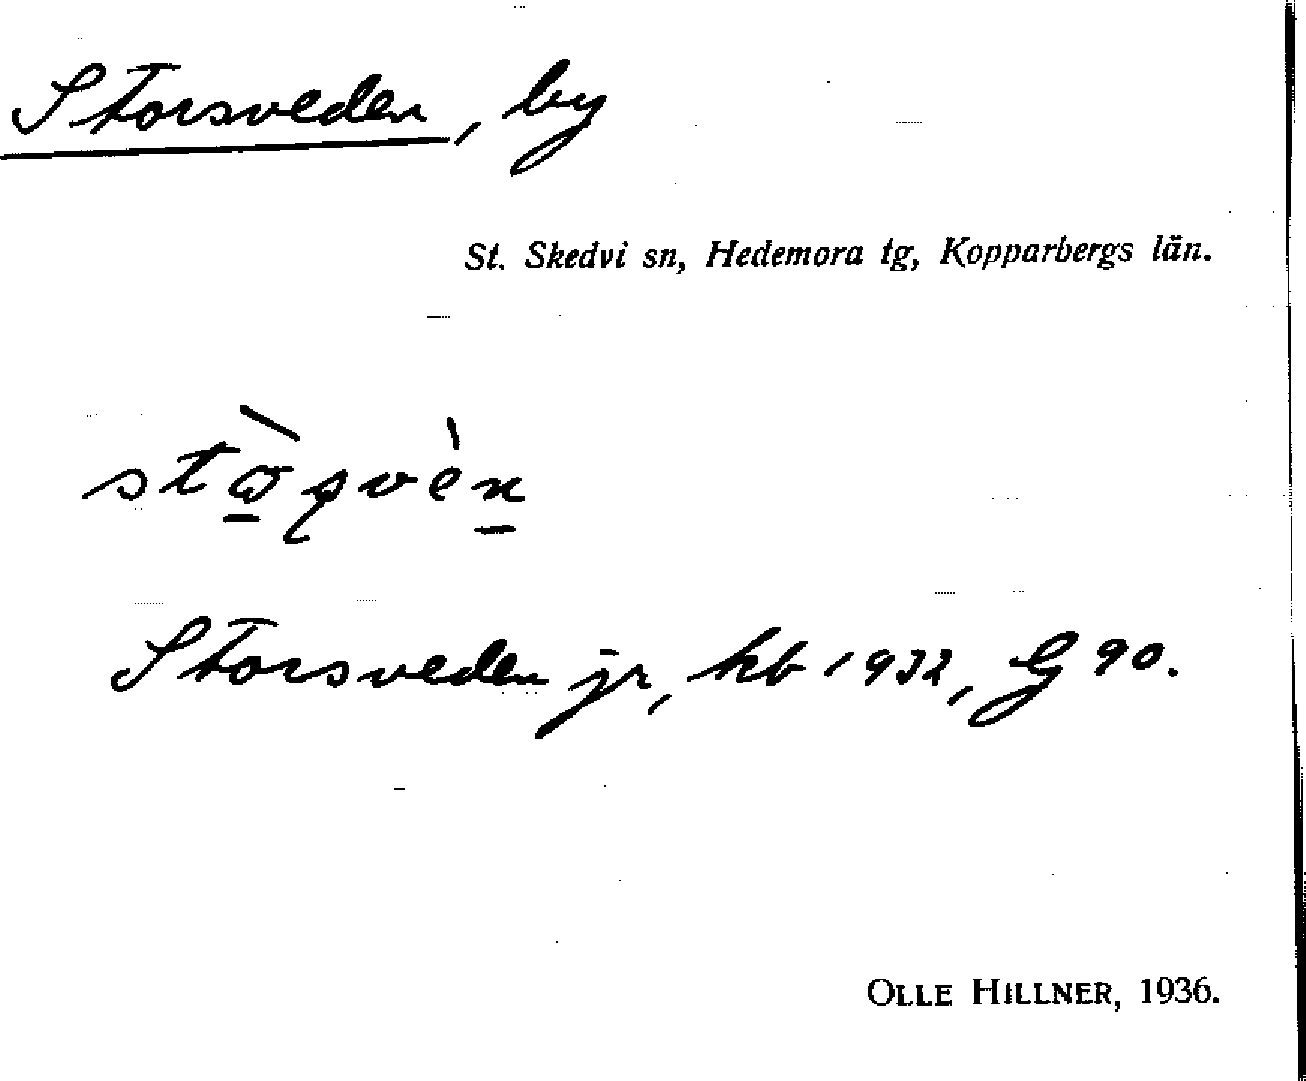 Storsveden, by
St. Skedvi sn, Hedemora tg, Kopparbergs län.
Storsveden jr, kb 1932, G 90.
OLLE HILLNER, 1936.